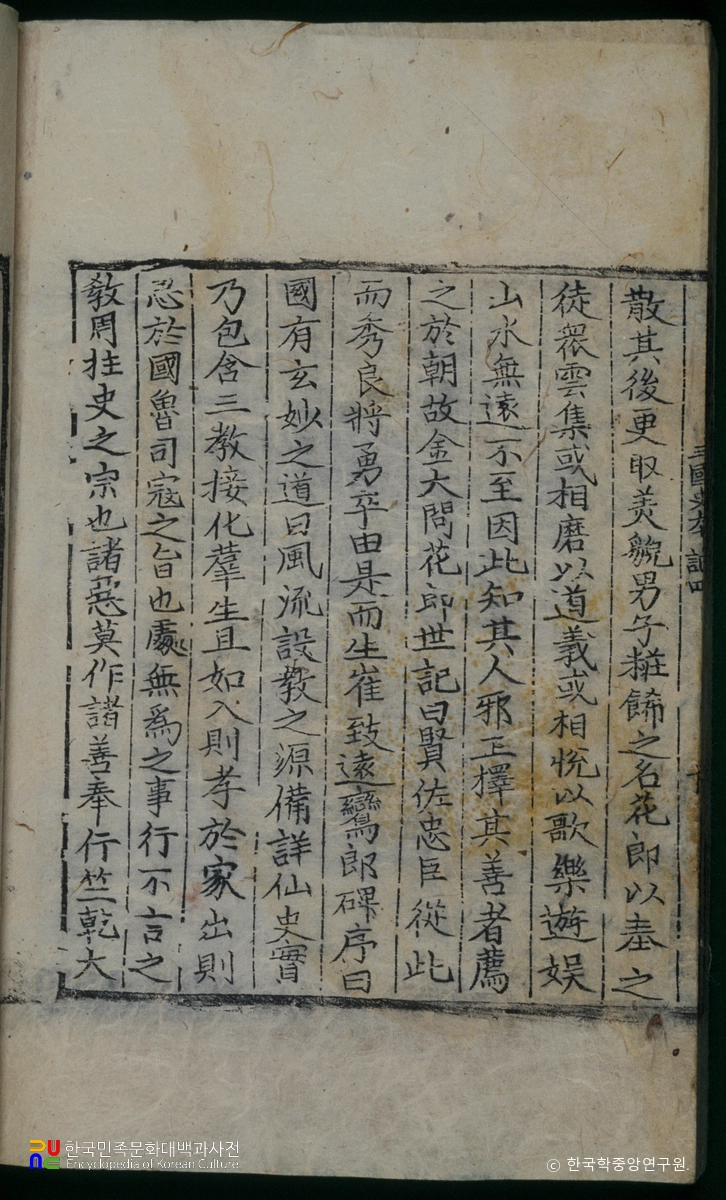 散其後更取美貌男子粧餙之名花郎以奉之
徒衆雲集或相磨以道義或相恱以歌樂遊娱
山水無遠不至因此知其人邪正擇其善者薦
之於朝故金大問花郎世記曰賢佐忠臣從此
而秀良將勇卒由是而生崔致遠鸞郎碑序曰
國有玄妙之道曰風流設敎之源備詳仙史實
乃包含三敎接化羣生且如入則孝於家出則
忠於國魯司寇之旨也處無爲之事行不言之
敎周柱史之宗也諸惡莫作諸善奉行竺乾大
한국민족문화대백과사전
Encyclopedia of Korean Culture
© 한국학중앙연구원.